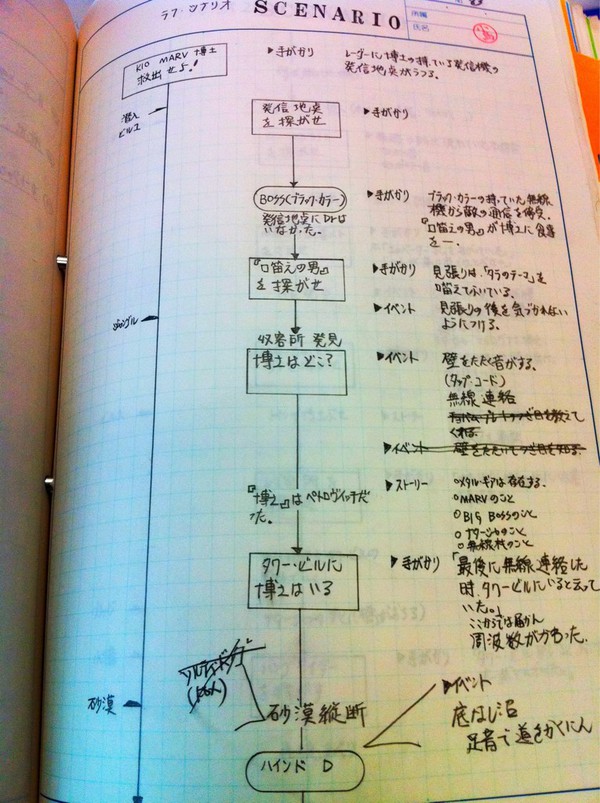 ラフ・シナリオ
SCENARIO
所属
氏名
KIO MARV 博士
救出せよ!
▶手がかり
レーダーに博士の持っている発信機の
発信地点がうつる。
潜入
ビル1
発信地点
を探がせ
▶手がかり
BOSS(ブラック・カラー)
発信地点にDrは
いなかった。
▶手がかり
ブラック・カラーの持っていた無線
機から敵の通信を傍受。
『口笛えの男』が博士に食事
を一。
『口笛えの男』
を探がせ
▶手がかり
見張りは、「タラのテーマ」を
口笛えでふいている。
▶イベント
見張りの後を気づかれない
ようにつける。
ジャングル
収容所 発見
博士はどこ?
▶イベント
壁をたたく音がする。
(タップ・コード)
無線連絡
▶イベント
壁をたたいて
『博士』はペトロヴィッチだ
った。
▶ストーリー
○メタル・ギアは存在する。
○MARVのこと
○BIG BOSSのこと
○ナターシャのこと
○無線機のこと
タワー・ビルに
博士はいる
▶手がかり
「最後に無線連絡した
時、タワービルにいると言って
いた。」
ここからでは届かん
周波数がかわった。
砂漠
砂漠縦断
▶イベント
底なし沼
足音で道をかくにん
ハインド D